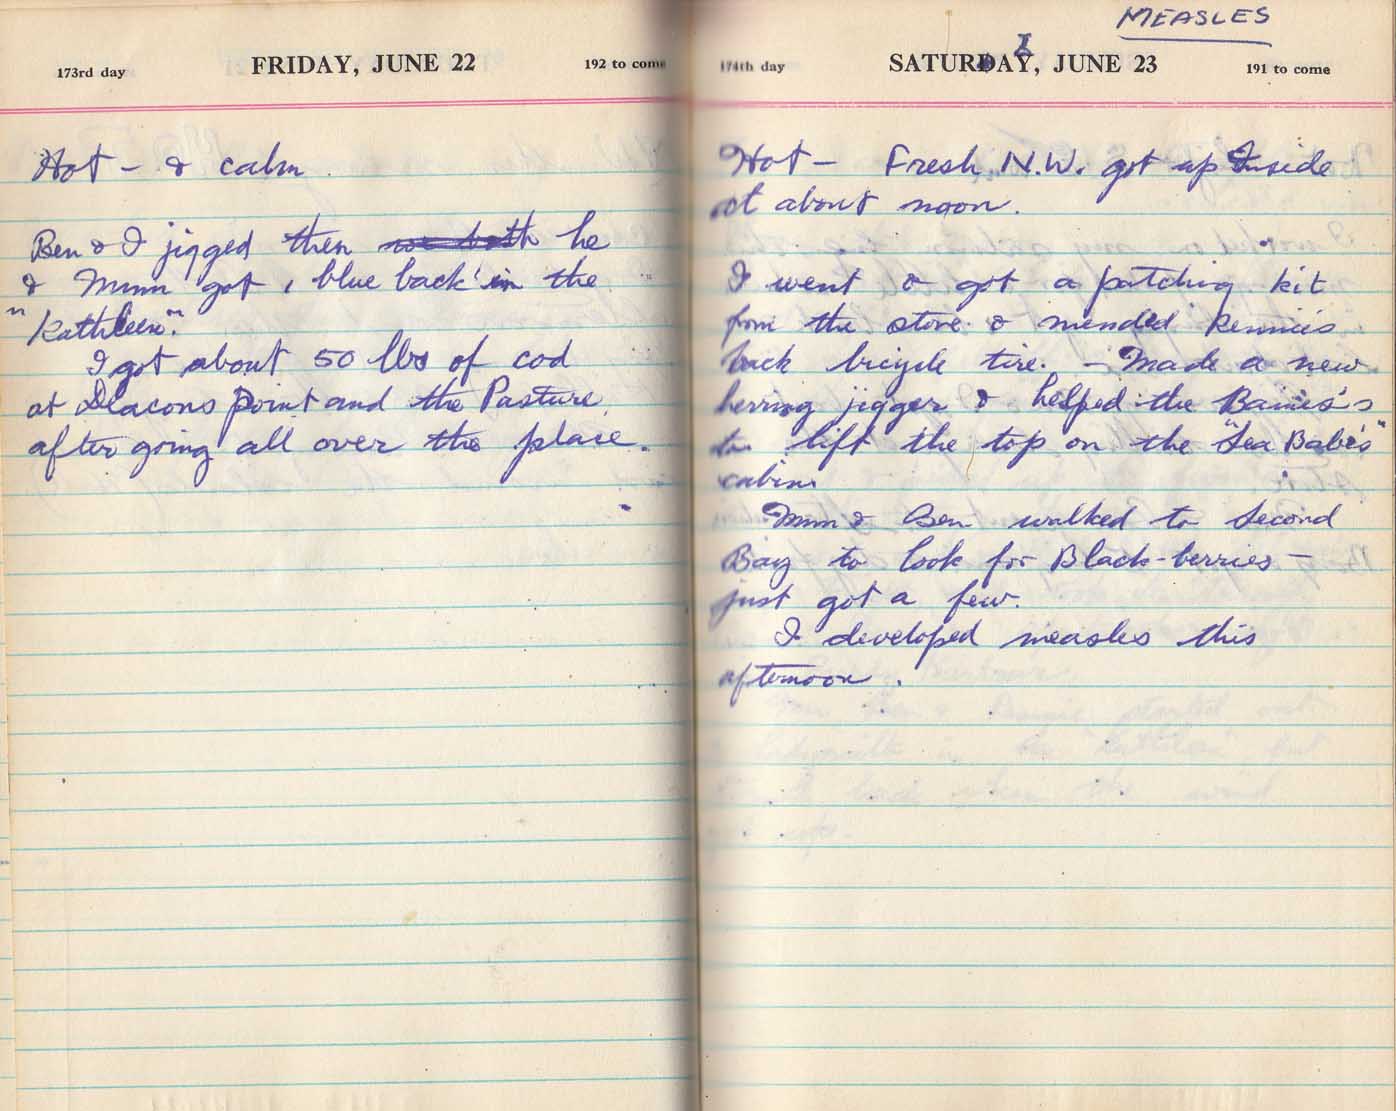 173rd day FRIDAY, JUNE 22 192 to come
Hot - & calm
Ben & I jigged then he
& Mum got 1 blue back in the
"Kathleen".
I got about 50 lbs of cod
at Deacons Point and the Pasture
after going all over the place.
MEASLES
174th day SATURDAY, JUNE 23 191 to come
Hot - Fresh N.W. got up Inside
at about noon.
I went & got a patching kit
from the store & mended Kennie's
back bicycle tire. - Made a new
herring jigger & helped the
to lift the top on the "Sea Babe's"
cabin.
Mum & Ben walked to Second
Bay to look for Black-berries -
just got a few.
I developed measles this
afternoon.